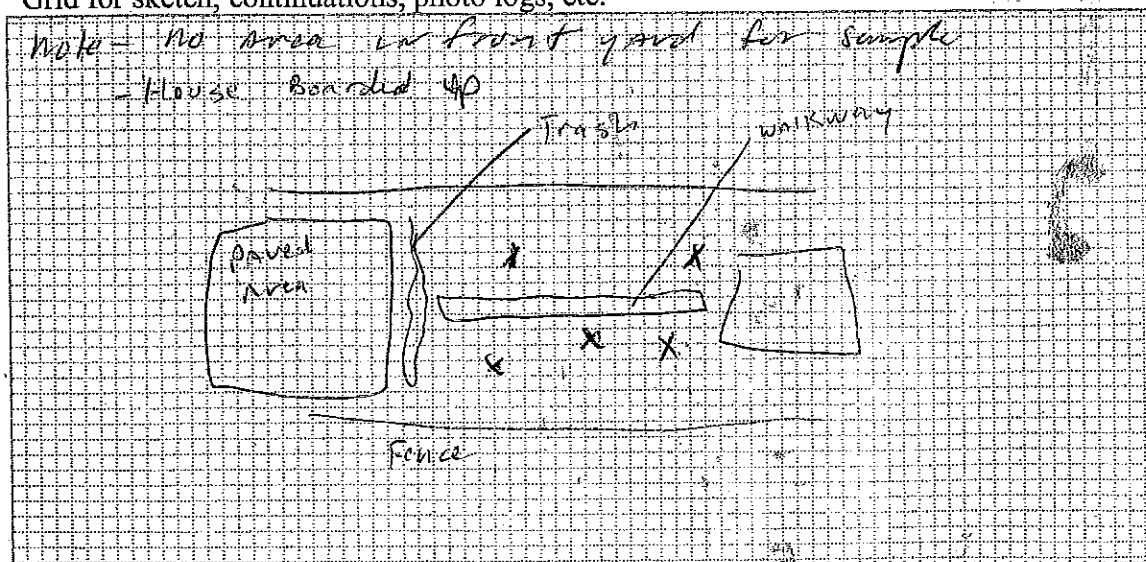 Grid for sketch, continuations, photo logs, etc.
Note - No Area in front yard for sample
- House Boarded up
Trash
walkway
Paved
Area
Fence